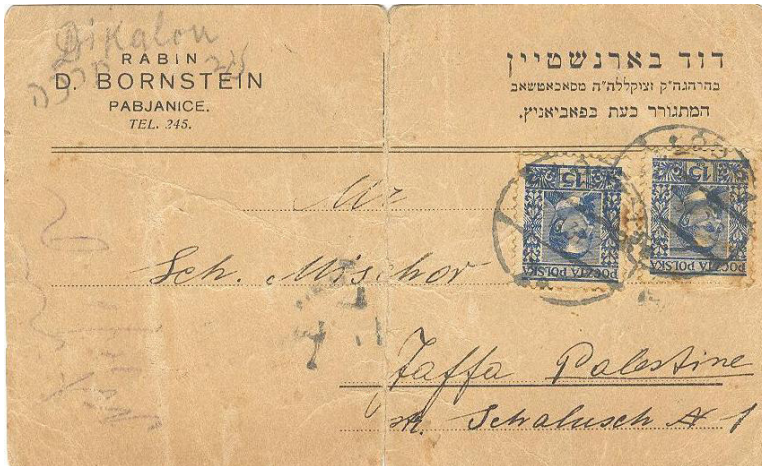 Dikalon
RABIN
D. BORNSTEIN
PABJANICE.
TEL. 245.
דוד בארנשטיין
בהרהגה"ק זצוקללה"ה מסאכאטשאב
המתגורר כעת בפאביאניץ.
15
POCZTA POLSKA
15
POCZTA POLSKA
Mr
Sch. Mischor
Jaffa Palestine
Schalusch
1